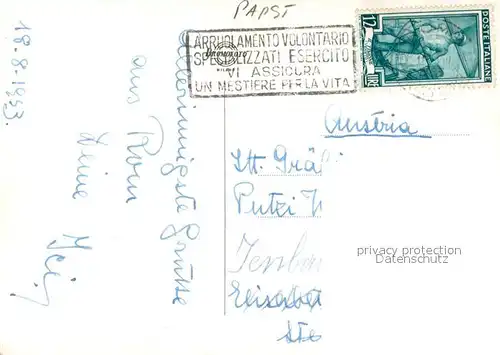 PAPST
ARRUOLAMENTO VOLONTARIO
SPECIALIZZATI ESERCITO
VI ASSICURA
UN MESTIERE PER LA VITA
POSTE ITALIANE
LIRE 12
18.8.1953.
Allerinnigste Grüsse
aus Rom
Deine
Austria
Gräf
Putzi
Jenba
Elisabet
Ste
privacy protection
Datenschutz